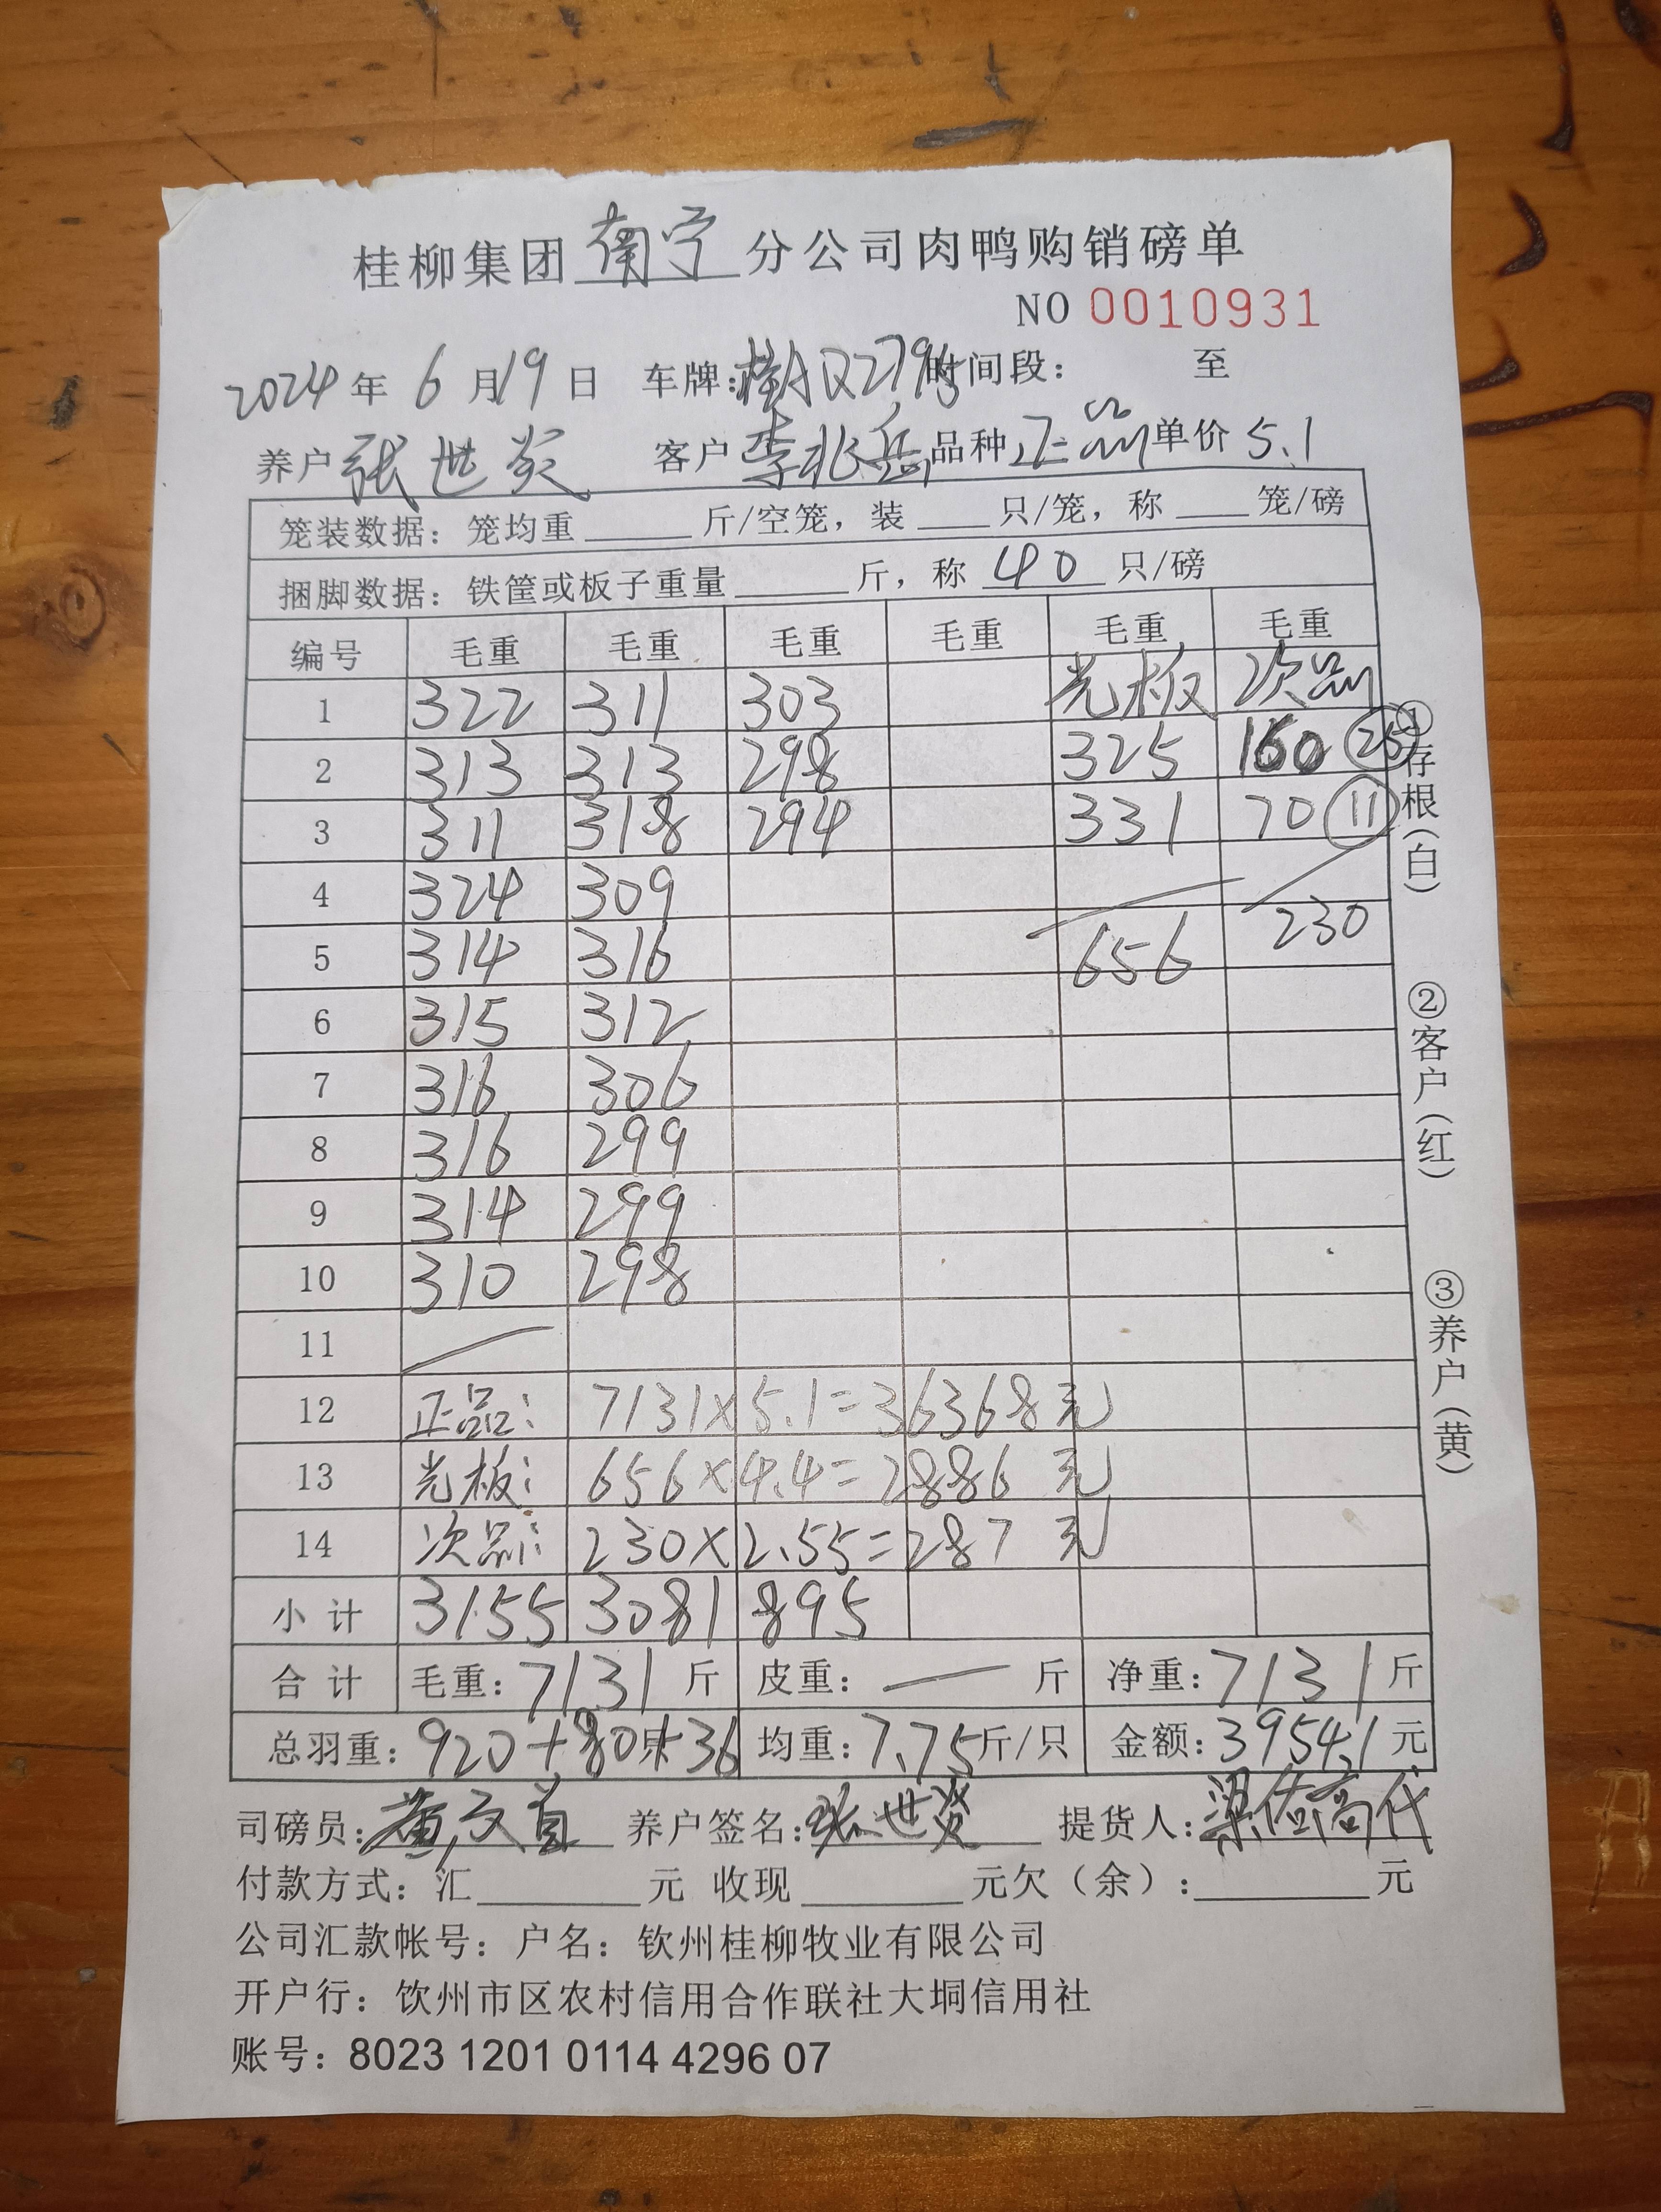 桂柳集团南宁分公司肉鸭购销磅单
NO 0010931
2024年6月19日 车牌: 时间段: 至
养户张世 客户李兆岳品种正品单价5.1
笼装数据: 笼均重 斤/空笼, 装 只/笼, 称 笼/磅
捆脚数据: 铁筐或板子重量 斤, 称 40 只/磅
编号 毛重 毛重 毛重 毛重 毛重 毛重
1 322 311 303 光板 次品
2 313 313 298 325 160 25
3 311 318 294 331 70 11
4 324 309
5 314 316 656 230
6 315 312
7 316 306
8 316 299
9 314 299
10 310 298
11
12 正品: 7131×5.1=36368元
13 光板: 656×4.4=2886元
14 次品: 230×2.55=287元
小计 3155 3081 895
合计 毛重: 7131 斤 皮重: — 斤 净重: 7131斤
总羽重: 920+80+36 均重: 7.75斤/只 金额: 39541元
司磅员: 黄文 养户签名: 张世 提货人: 梁 代
付款方式: 汇 元 收现 元欠(余): 元
公司汇款帐号: 户名: 钦州桂柳牧业有限公司
开户行: 钦州市区农村信用合作联社大垌信用社
账号: 8023 1201 0114 4296 07
①存根(白)
②客户(红)
③养户(黄)